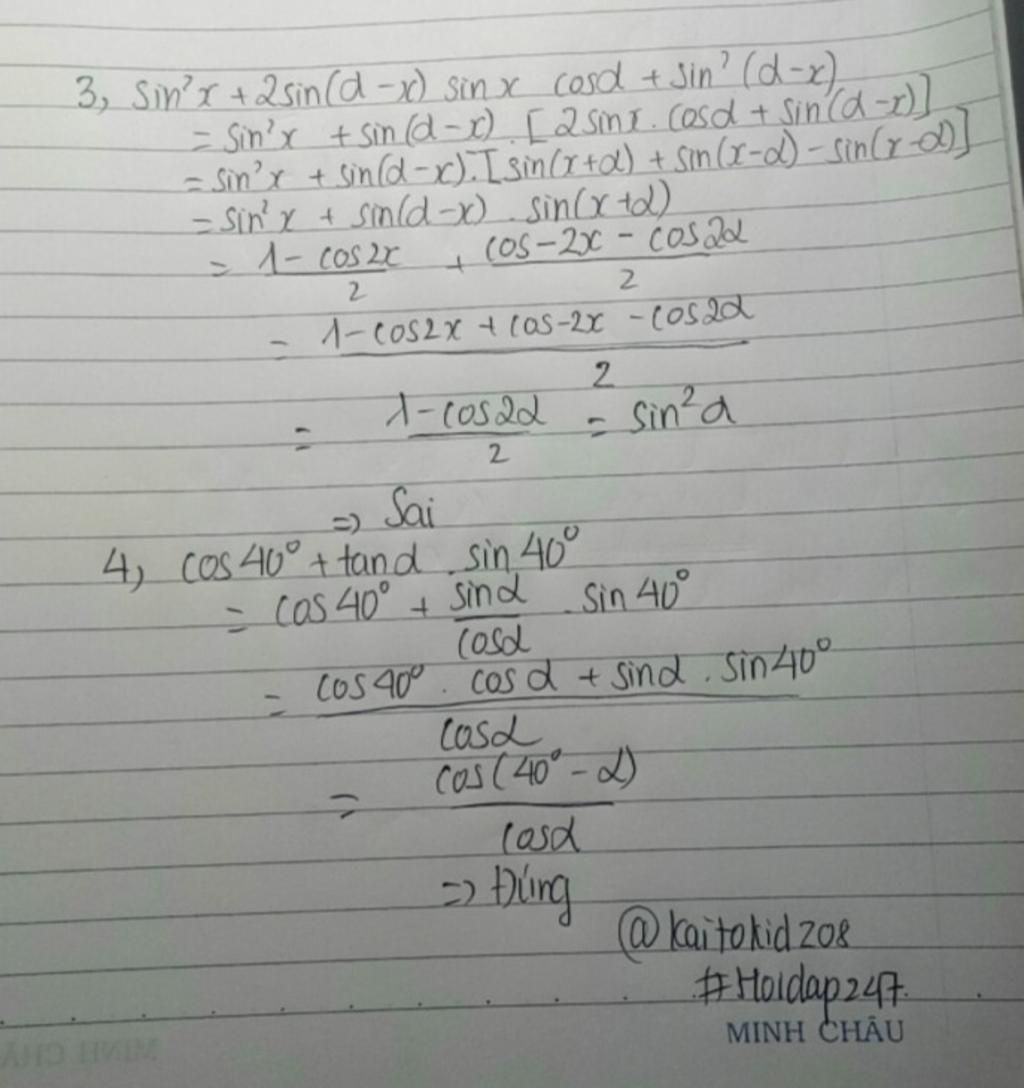 3, sin²x + 2sin(α-x) sinx cosα + sin²(α-x)
= sin²x + sin(α-x). [2sinx. cosα + sin(α-x)]
= sin²x + sin(α-x). [sin(x+α) + sin(x-α) - sin(x-α)]
= sin²x + sin(α-x) . sin(x+α)
= (1- cos2x)/2 + (cos-2x - cos2α)/2
= (1-cos2x + cos-2x - cos2α)/2
= (1-cos2α)/2 = sin²α
=> Sai
4, cos40° + tanα . sin40°
= cos40° + sinα/cosα . sin40°
= (cos40° . cosα + sinα . sin40°)/cosα
= cos(40° - α)/cosα
=> Đúng
@kaitokid208
#Hoidap247.
MINH CHÂU